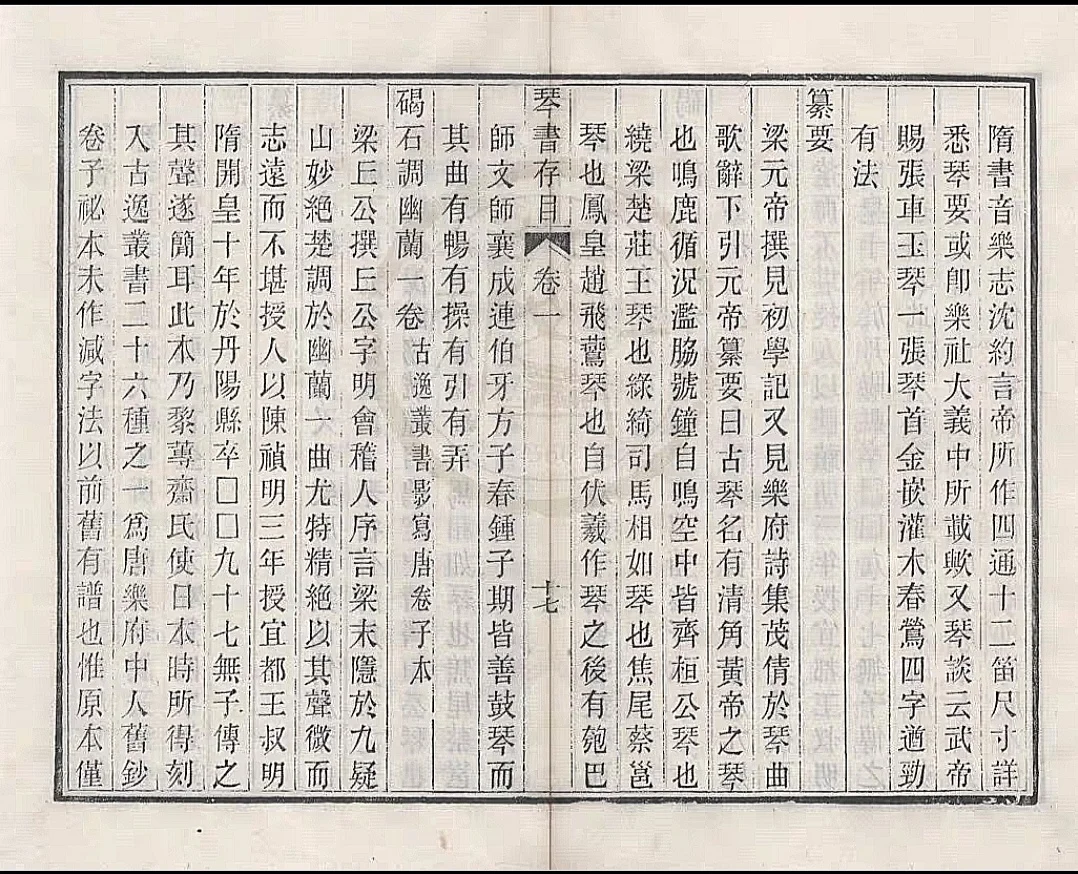 隋書音樂志沈約言帝所作四通十二笛尺寸詳
悉琴要或卽樂社大義中所載歟又琴談云武帝
賜張車玉琴一張琴首金嵌灌木春鶯四字遒勁
有法
纂要
梁元帝撰見初學記又見樂府詩集茂倩於琴曲
歌辭下引元帝纂要曰古琴名有清角黃帝之琴
也鳴鹿循況濫脇號鐘自鳴空中皆齊桓公琴也
繞梁楚莊王琴也綠綺司馬相如琴也焦尾蔡邕
琴也鳳皇趙飛鷰琴也自伏羲作琴之後有匏巴
琴書存目 卷一 十七
師文師襄成連伯牙方子春鍾子期皆善鼓琴而
其曲有暢有操有引有弄
碣石調幽蘭一卷 古逸叢書影寫唐卷子本
梁丘公撰丘公字明會稽人序言梁末隱於九疑
山妙絕楚調於幽蘭一曲尤特精絕以其聲微而
志遠而不堪授人以陳禎明三年授宜都王叔明
隋開皇十年於丹陽縣卒□□九十七無子傳之
其聲遂簡耳此本乃黎蒓齋氏使日本時所得刻
入古逸叢書二十六種之一爲唐樂府中人舊鈔
卷子祕本未作減字法以前舊有譜也惟原本僅